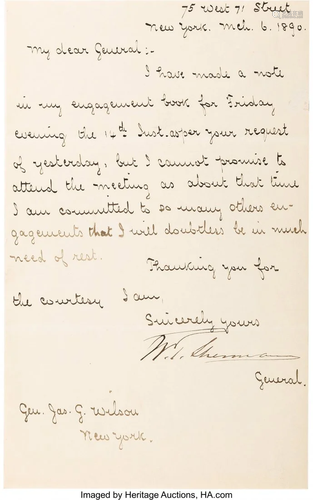 75 West 71 Street
New York. Mch. 6. 1890.
My dear General:-
I have made a note
in my engagement book for Friday
evening the 14th Inst. as per your request
of yesterday, but I cannot promise to
attend the meeting as about that time
I am committed to so many others en-
gagements that I will doubtless be in much
need of rest.
Thanking you for
the courtesy I am,
Sincerely yours
W. T. Sherman
General.
Gen. Jas. G. Wilson
New York.
Imaged by Heritage Auctions, HA.com